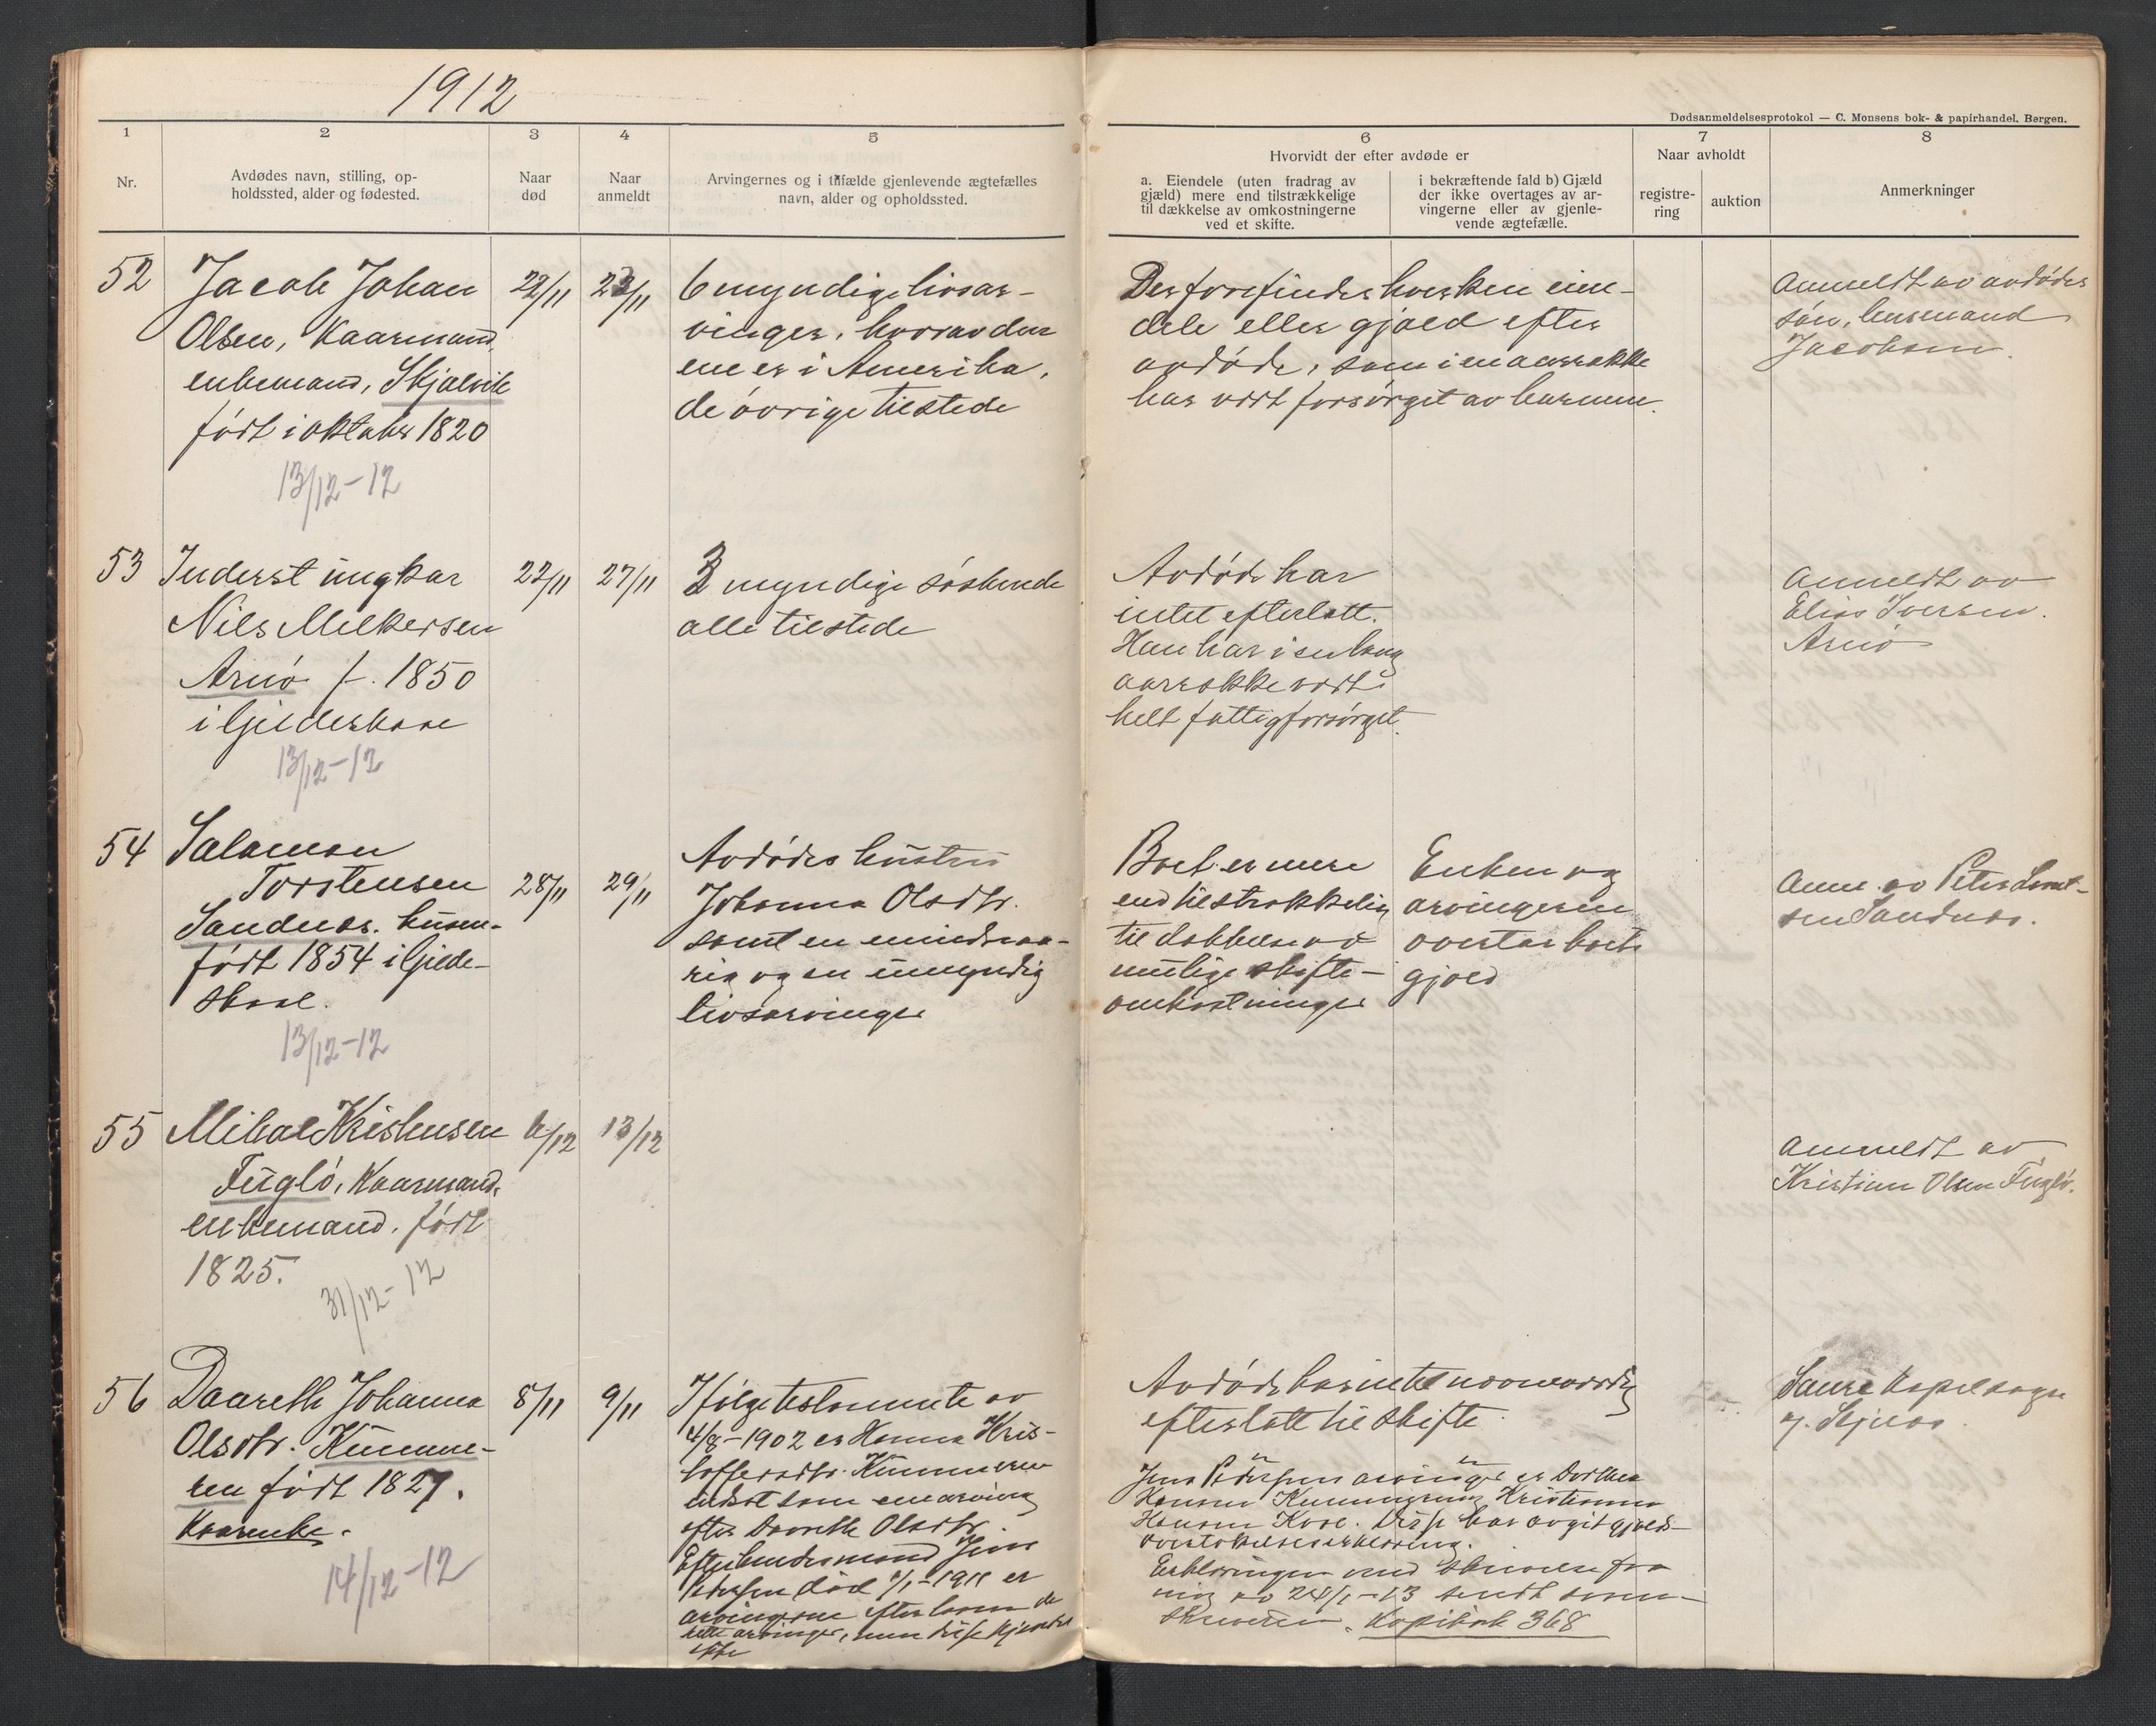 1912
Dødsanmeldelsesprotokol — C. Monsens bok- & papirhandel. Bergen.
1
2
3
4
5
6
7
8
Nr.
Avdødes navn, stilling, op-
holdssted, alder og fødested.
Naar
død
Naar
anmeldt
Arvingernes og i tilfælde gjenlevende ægtefælles
navn, alder og opholdssted.
Hvorvidt der efter avdøde er
a. Eiendele (uten fradrag av
gjæld) mere end tilstrækkelige
til dækkelse av omkostningerne
ved et skifte.
i bekræftende fald b) Gjæld
der ikke overtages av ar-
vingerne eller av gjenle-
vende ægtefælle.
Naar avholdt
registre-
ring
auktion
Anmerkninger
52
Jacob Johan
Olsen, Kaarmand,
enkemand, Skjælvik
født i oktober 1820
13/12-12
22/11
23/11
6 myndige livsar-
vinger, hvorav den
ene er i Amerika,
de øvrige tilstede
Der forefindes hverken eien-
dele eller gjæld efter
avdøde, som i en aarrække
har vært forsørget av barnene.
Anmeldt av avdødes
søn, husmand
Jacobsen.
53
Inderst ungkar
Nils Melkersen
Arnø f. 1850
i Gildeskaal
13/12-12
22/11
27/11
3 myndige søskende
alle tilstede
Avdøde har
intet efterlatt.
Han har i en lang
aarrække vært
helt fattigforsørget.
Anmeldt av
Elias Iversen.
Arnø
54
Salamon
Torstensen
Sandnes. husm.
født 1854 i Gilde-
skaal.
13/12-12
28/11
29/11
Avdødes hustru
Johanna Olsdtr.
samt en mindreaa-
rig og en umyndig
livsarvinger
Boet er mere
end tilstrækkelig
til dækkelse av
mulige skifte-
omkostninger
Enken og
arvingerne
overtar boets
gjæld
Anm. av Peter
Sandnes.
55
Mikal Kristensen
Fuglø, Kaarmand,
enkemand. født
1825.
31/12-12
6/12
13/12
Anmeldt av
Kristian Olsen Fuglø.
56
Daareth Johanna
Olsdtr. Kunne-
ren født 1827.
Kaarenke.
14/12-12
8/11
9/11
Ifølge testamente av
4/8-1902 er Hanna Kris-
toffersdtr. Kunneren
indsat som enearving
efter Dorreth Olsdtr.
Efter hendes mand Jens
Pedersen død 1/1-1911 er
arvingerne efter loven de
rette arvinger, men disse kjendes
ikke
Avdøde har intet nævneværdig
efterlatt til skifte.
Jens Pedersens arvinger er Dorthea
Hansen Kunneren, Kristianna
Hansen. Disse har avgit gjælds-
overtakelseserklæring.
Erklæringen med skrivelse fra
mig av 24/1-13 sendt soren-
skriveren. Kopibok 368
Saura Kapelsogn